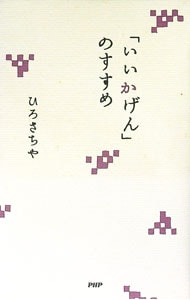 「いいかげん」
のすすめ
ひろさちや
PHP